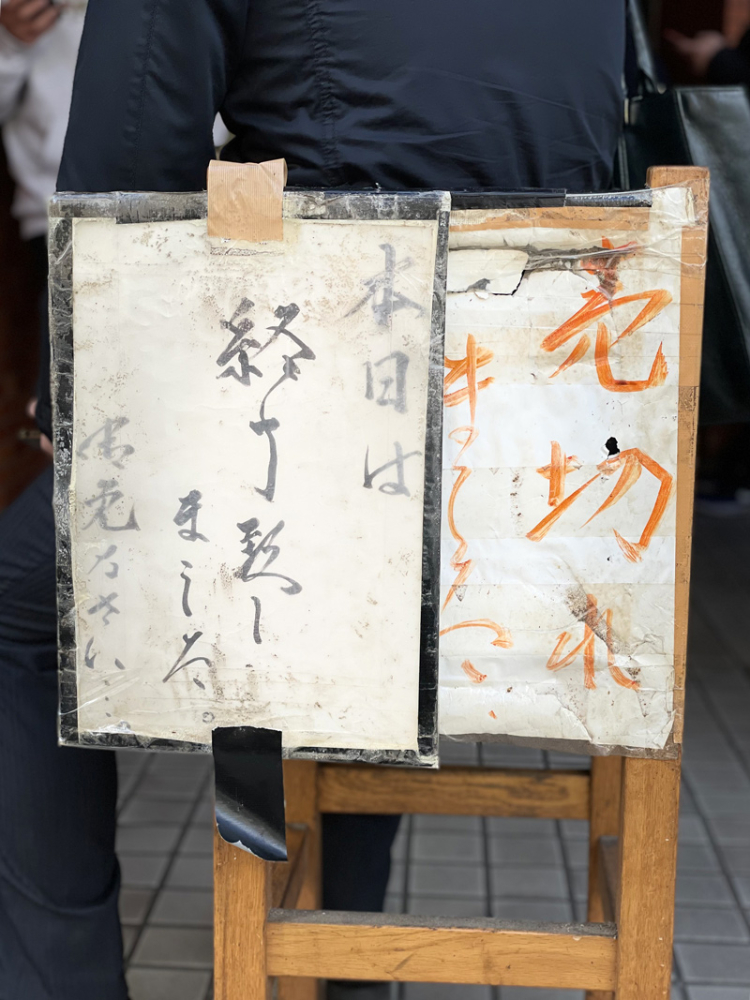 売切れ
本日は
終了致し
ました。
御免なさい